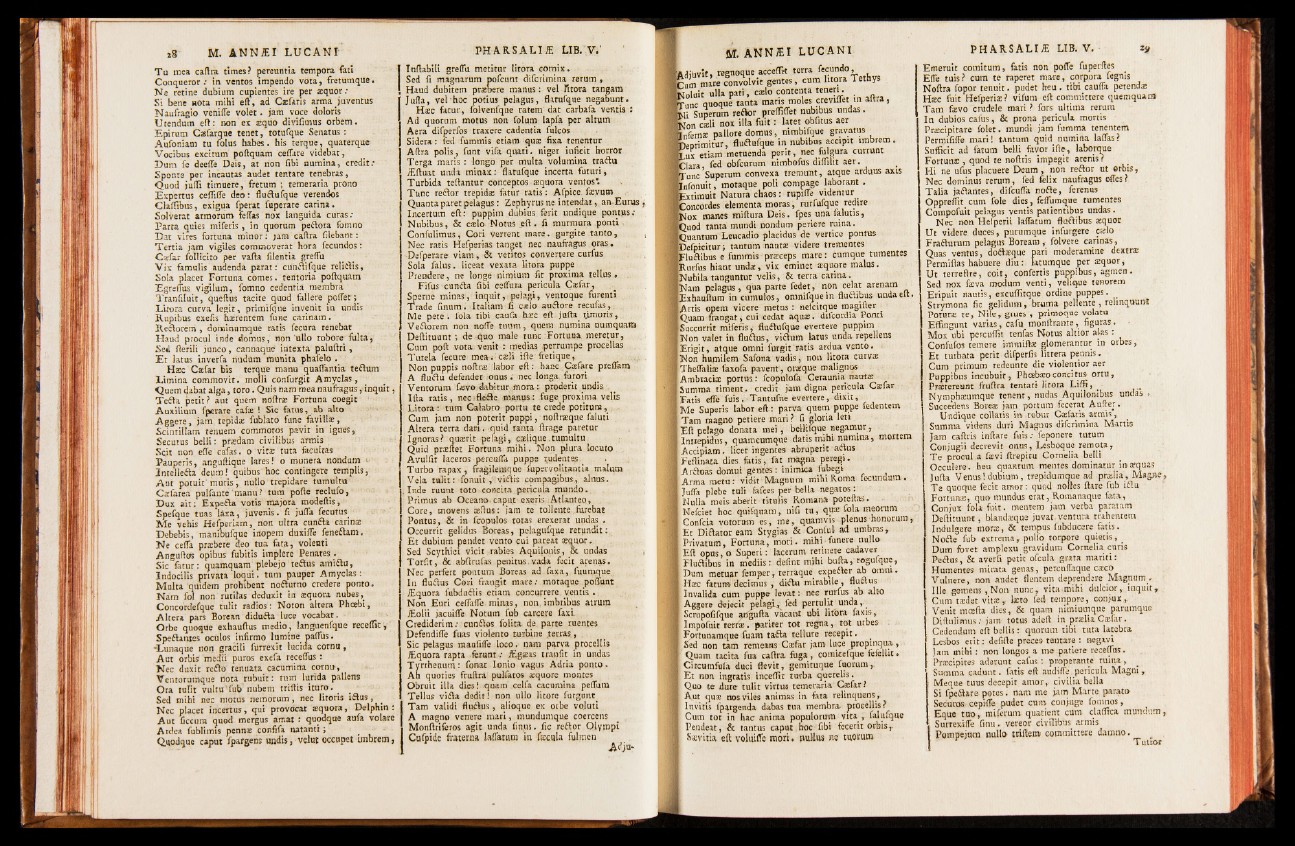 28 M. ANNÆI LUCANI
Tu mea castra times? pereuntia tempora fati
Conqueror: in ventos impendo vota, fretumque.
Ne retine dubium cupientes ire per æquor:
Si bene nota mihi est, ad Cæsaris arma juventus
Naufragio venisse volet. jam voce doloris
Utendum est: non ex æquo divisimus orbem.
Epirum Cæsarque tenet, totusque Senatus:
Ausoniam tu solus habes. his terque, quaterque
Vocibus excitum postquam cessare videbat,
Dum se deesse Deis, at non sibi numina, credit:
Sponte per incautas audet tentare tenebras,
Quod jussi timuere, fretum; temeraria prono
Expertus cessisse deo: fluctusque verendos
Classibus, exigua sperat superare carina.
Solverat armorum fessas nox languida curas:
Parta quies miseris, in quorum pectora somno
Dat vires fortuna minor: jam castra silebant:
Tertia jam vigiles commoverat hora secundos:
Cæsar sollicito per vasta silentia gressu
Vix famulis audenda parat: cunctisque relictis,
Sola placet Fortuna comes. tentoria postquam
Egressus vigilum, somno cedentia membra
Transsiluit, questus tacite quod fallere posset;
Litora curva legit, primisque invenit in undis
Rupibus exesis hærentem fune carinam.
Rectorem, dominumque ratis secura tenebat
Haud procul inde domus, non ullo robore fulta,
Sed sterili junco, cannaque intexta palustri,
Et latus inversa nudum munita phaselo.
Hæc Cæsar bis terque manu quassantia tectum
Limina commovit. molli consurgit Amyclas,
Quem dabat alga, toro. Quis nam mea naufragus, inquit,
Tecta petit? aut quem nostræ Fortuna coegit
Auxilium sperare casæ! Sic fatus, ab alto
Aggere, jam tepidæ sublato fune favillæ,
Scintillam tenuem commotos pavit in ignes,
Securus belli: prædam civilibus armis
Scit non esse casas. o vitæ tuta facultas
Pauperis, angustique lares! o munera nondum
Intellecta deum! quibus hoc contingere templis,
Aut potuit muris, nullo trepidare tumultu
Cæsarea pulsante manu? tum poste recluso,
Dux ait: Expecta votis majora modestis,
Spesque tuas laxa, juvenis. si jussa secutus
Me vehis Hesperiam, non ultra cuncta carinæ
Debebis, manibusque inopem duxisse senectam.
Ne cessa præbere deo tua fata, volenti
Angustos opibus subitis implere Penates.
Sic fatur: quamquam plebejo tectus amictu,
Indocilis privata loqui. tum pauper Amyclas:
Multa quidem prohibent nocturno credere ponto.
Nam sol non rutilas deduxit in æquora nubes,
Concordesque tulit radios: Noton altera Phœbi,
Altera pars Borean diducta luce vocabat.
Orbe quoque exhaustus medio, languensque recessit,
Spectantes oculos infirmo lumine passus.
Lunaque non gracili surrexit lucida cornu,
Aut orbis medii puros exesa recessus:
Nec duxit recto tenuata cacumina cornu,
Ventorumque nota rubuit: tum lurida pallens
Ora tulit vultu sub nubem tristis ituro.
Sed mihi nec motus nemorum, nec litoris ictus,
Nec placet incertus, qui provocat æquora, Delphin:
Aut siccum quod mergus amat: quodque ausa volare
Ardea sublimis pennæ confisa natanti;
Quodque caput spargens undis, velut occupet imbrem,
PHARSALIÆ LIB. V.
Instabili gressu metitur litora cornix.
Sed si magnarum poscunt discrimina rerum,
Haud dubitem præbere manus: vel litora tangam
Jussa, vel hoc potius pelagus, flatusque negabunt.
Hæc fatur, solvensque ratem dat carbasa ventis:
Ad quorum motus non solum lapsa per altum
Aera disperSos traxere cadentia sulcos
Sidera: sed summis etiam quæ fixa tenentur
Astra polis, sunt visa quati. niger inficit horror
Terga maris: longo per multa volumina tractu
Æstuat unda minax: flatusque incerta futuri,
Turbida testantur conceptos æquora ventos.
Tunc rector trepidæ fatur ratis: Aspice sævum
Quanta paret pelagus: Zephyrus ne intendat, an Eurus,
Incertum est: puppim dubius ferit undique pontus:
Nubibus, & cælo Notus est. si murmura ponti
Consulimus, Cori verrent mare. gurgite tanto,
Nec ratis Hesperias tanget nec naufragus oras.
Desperare viam, & vetitos convertere cursus
Sola salus. liceat vexata litora puppe
Prendere, ne longe nimium sit proxima tellus.
Fisus cuncta sibi cessura pericula Cæsar,
Sperne minas, inquit, pelagi, ventoque furenti
Trade sinum. Italiam si cælo auctore recusas,
Me pete. sola tibi causa hæc est justa timoris,
Vectorem non nosse tuum, quem numina numquam
Destituunt; de quo male tunc Fortuna meretur,
Cum post vota venit: medias perrumpe procellas
Tutela secure mea. cæli iste fretique,
Non puppis nostræ labor est: hanc Cæsare pressam
A fluctu defendet onus. nec longa furori
Ventorum sævo dabitur mora: proderit undis
Ista ratis, nec flecte manus: fuge proxima velis
Litora: tum Calabro portu te crede potitum,
Cum jam non poterit puppi, nostræque saluti
Altera terra dari. quid tanta strage paretur
Ignoras? quærit pelagi, cælique tumultu
Quid præstet Fortuna mihi. Non plura locuto
Avulsit laceros percussa puppe rudentes
Turbo rapax, fragilemque supervolitantia malum
Vela tulit: sonuit, victis compagibus, alnus.
Inde ruunt toto concita pericula mundo.
Primus ab Oceano caput exeris Atlanteo,
Core, movens æstus: jam te tollente furebat
Pontus, & in scopulos totas erexerat undas.
Occurrit gelidus Boreas, pelagusque retundit:
Et dubium pendet vento cui pareat æquor.
Sed Scythici vicit rabies Aquilonis, & undas
Torsit, & abstrusas penitus vada fecit arenas.
Nec perfert pontum Boreas ad saxa, suumque
In fluctus Cori frangit mare: motaque possunt
Æquora subductis etiam concurrere ventis.
Non Euri cessasse minas, non imbribus atrum
Æolii jacuisse Notum sub carcere saxi
Crediderim: cunctos solita de parte ruentes
Defendisse suas violento turbine terras,
Sic pelagus mansisse loco. nam parva procellis
Æquora rapta ferunt: Ægæas transit in undas
Tyrrhenum: sonat Ionio vagus Adria ponto.
Ah quoties frustra pulsatos æquore montes
Obruit illa dies! quam celsa cacumina pessum
Tellus victa dedit! non ullo litore surgunt
Tam validi fluctus, alioque ex orbe voluti
A magno venere mari, mundumque coercens
Monstriferos agit unda sinus. sic rector Olympi
Cuspide fraterna lassatum in sæcula fulmen
Adju-
M. ANNÆI LUCANI
Adjuvit, regnoque accessit terra secundo,
Cum mare convolvit gentes, cum litora Tethys
Noluit ulla pati, cælo contenta teneri.
Tunc quoque tanta maris moles crevisset in astra,
Ni Superum rector pressisset nubibus undas.
Non cæli nox illa fuit: latet obsitus aer
Infernæ pallore domus, nimbisque gravatus
Deprimitur, fluctusque in nubibus accipit imbrem.
Lux etiam metuenda perit, nec fulgura currunt
Clara, sed obscurum nimbosus dissilit aer.
Tunc Superum convexa tremunt, atque arduus axis
Insonuit, motaque poli compage laborant.
Extimuit Natura chaos: rupisse videntur
Concordes elementa moras, rursusque redire
Nox manes mistura Deis. spes una salutis,
Quod tanta mundi nondum periere ruina.
Quantum Leucadio placidus de vertice pontus
Despicitur; tantum nautæ videre trementes
Fluctibus e summis præceps mare: cumque tumentes
Rursus hiant undæ, vix eminet æquore malus.
Nubila tanguntur velis, & terra carina.
Nam pelagus, qua parte sedet, non celat arenam
Exhaustum in cumulos, omnisque in fluctibus unda est.
Artis opem vicere metus: nescitque magister
Quam frangat, cui cedat aquæ. discordia Ponti
Succurrit miseris, fluctusque evertere puppim
Non valet in fluctus, victum latus unda repellens
Erigit, atque omni surgit ratis ardua vento.
Non humilem Sasona vadis, non litora curvæ
Thessaliæ saxosa pavent, oræque malignos
Ambraciæ portus: scopulosa Ceraunia nautæ
Summa timent. credit jam digna pericula Cæsar
Fatis esse suis. Tantusne evertere, dixit,
Me Superis labor est: parva quem puppe sedentem
Tam magno petiere mari? si gloria leti
Est pelago donata mei, bellisque negamur,
Intrepidus, quamcumque datis mihi numina, mortem
Accipiam. licet ingentes abruperit actus
Festinata dies fatis, sat magna peregi.
Arctoas domui gentes: inimica subegi
Arma metu: vidit Magnum mihi Roma secundum.
Jussa plebe tuli fasces per bella negatos:
Nulla meis aberit titulis Romana potestas.
Nesciet hoc quisquam, nisi tu, quæ sola meorum
Conscia votorum es, me, quamvis plenus honorum,
Et Dictator eam Stygias & Consul ad umbras,
Privatum, Fortuna, mori. mihi funere nullo
Est opus, o Superi: lacerum retinete cadaver
Fluctibus in mediis: desint mihi busta, rogusque,
Dum metuar semper, terraque expecter ab omni.
Hæc fatum decimus, dictu mirabile, fluctus
Invalida cum puppe levat: nec rursus ab alto
Aggere dejecit pelagi, sed pertulit unda,
Scruposisque angusta vacant ubi litora saxis,
Imposuit terræ. pariter tot regna, tot urbes
Fortunamque suam tacta tellure recepit.
Sed non tam remeans Cæsar jam luce propinqua,
Quam tacita sua castra fuga, comitesque fefellit.
Circumfusa duci flevit, gemituque suorum,
Et non ingratis incessit turba querelis.
Quo te dure tulit virtus temeraria Cæsar?
Aut quæ nos viles animas in fata relinquens,
Invitis spargenda dabas tua membra procellis?
Cum tot in hac anima populorum vita, salusque
Pendeat, & tantus caput hoc sibi fecerit orbis,
Sævitia est voluisse mori. nullus ne tuorum
PHARSALIÆ LIB. V. 29
Emeruit comitum, fatis non posse superstes
Esse tuis? cum te raperet mare, corpora segnis
Nostra sopor tenuit. pudet heu. tibi caussa petendæ
Hæc fuit Hesperiæ? visum est committere quemquam
Tam sævo crudele mari? sors ultima rerum
In dubios casus, & prona pericula mortis
Præcipitare solet. mundi jam summa tenentem
Permisisse mari! tantum quid numina lassas?
Sufficit ad fatum belli favor iste, laborque
Fortunæ, quod te nostris impegit arenis?
Hi ne usus placuere Deum, non rector ut orbis,
Nec dominus rerum, sed felix naufragus esses?
Talia jactantes, discussa nocte, serenus
Oppressit cum sole dies, fessumque tumentes
Composuit pelagus ventis patientibus undas.
Nec non Hesperii lassatum fluctibus æquor
Ut videre duces, purumque insurgere cælo
Fracturum pelagus Boream, solvere carinas,
Quas ventus, doctæque pari moderamine dextræ
Permistas habuere diu: latumque per æquor,
Ut terrestre, coit, consertis puppibus, agmen.
Sed nox sæva modum venti, velique tenorem
Eripuit nautis, excussitque ordine puppes.
Strymona sic gelidum, bruma pellente, relinquunt
Poturæ te, Nile, grues, primoque volatu
Effingunt varias, casu monstrante, figuras.
Mox ubi percussit tensas Notus altior alas:
Confusos temere immistæ glomerantur in orbes,
Et turbata perit dispersis littera pennis.
Cum primum redeunte die violentior aer
Puppibus incubuit, Phœbæo concitus ortu,
Prætereunt frustra tentati litora Lissi,
Nymphæumque tenent, nudas Aquilonibus undas
Succedens Boreæ jam portum fecerat Auster.
Undique collatis in robur Cæsaris armis,
Summa videns duri Magnus discrimina Martis
Jam castris instare suis: seponere tutum
Conjugii decrevit onus, Lesboque remota,
Te procul a sævi strepitu Cornelia belli
Occulere. heu quantum mentes dominatur in æquas
Justa Venus! dubium, trepidumque ad prælia, Magne,
Te quoque fecit amor: quod nolles stare sub ictu
Fortunæ, quo mundus erat, Romanaque fata,
Conjux sola fuit. mentem jam verba paratam
Destituunt, blandæque juvat ventura trahentem
Indulgere moræ, & tempus subducere fatis.
Nocte sub extrema, pulso torpore quietis,
Dum fovet amplexu gravidum Cornelia curis
Pectus, & aversi petit oscula grata mariti:
Humentes mirata genas, percussaque cæco
Vulnere, non audet flentem deprendere Magnum.
Ille gemens, Non nunc, vita mihi dulcior, inquit,
Cum tædet vitæ, læto sed tempore, conjux,
Venit mœsta dies, & quam nimiumque parumque
Distulimus: jam totus adest in prælia Cæsar.
Cedendum est bellis: quorum tibi tuta latebra
Lesbos erit: desiste preces tentare: negavi
Jam mihi: non longos a me patiere recessus.
Præcipites aderunt casus: properante ruina,
Summa cadunt. satis est audisse pericula Magni,
Meque tuus decepit amor, civilia bella
Si spectare potes. nam me jam Marte parato
Securos cepisse pudet cum conjuge somnos,
Eque tuo, miserum quatient cum classica mundum,
Surrexisse sinu. vereor civilibus armis
Pompejum nullo tristem committere damno.
Tutior